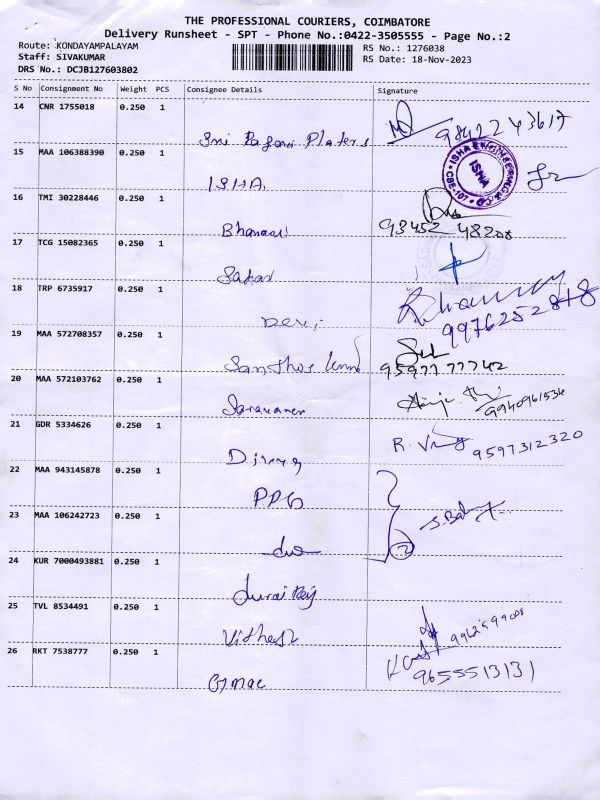 THE PROFESSIONAL COURIERS, COIMBATORE
Delivery Runsheet - SPT - Phone No.:0422-3505555 - Page No.:2
Route: KONDAYAMPALAYAM
Staff: SIVAKUMAR
DRS No.: DCJB127603802
RS No.: 1276038
RS Date: 18-Nov-2023
S No Consignment No Weight PCS Consignee Details Signature
14 CNR 1755018 0.250 1
98422 43617
15 MAA 106388390 0.250 1
ISHA ENGINEERING
ISHA
CBE-107
ISHA
16 TMI 30228446 0.250 1
93452 48208
Bhavani
17 TCG 15082365 0.250 1
18 TRP 6735917 0.250 1
Devi
9976252818
19 MAA 572708357 0.250 1
Santhos
95977 77742
20 MAA 572103762 0.250 1
Saravanan
9940961534
21 GDR 5334626 0.250 1
R. 9597312320
22 MAA 943145878 0.250 1
PPG
23 MAA 106242723 0.250 1
do
2
24 KUR 7000493881 0.250 1
Durai Raj
25 TVL 8534491 0.250 1
9962599008
26 RKT 7538777 0.250 1
9655513131
Gmac